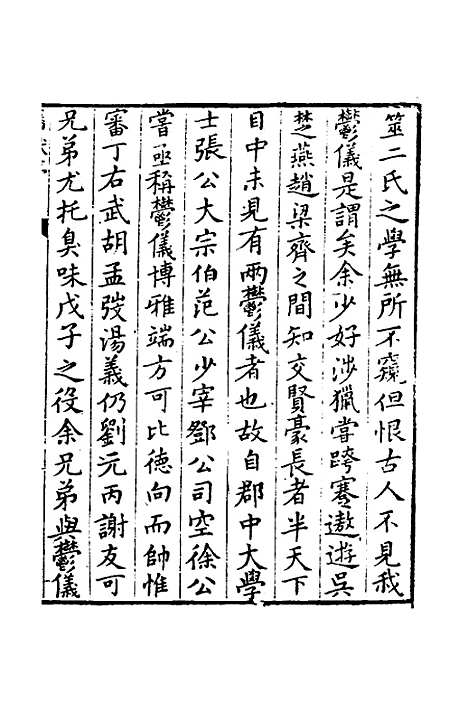 筮二氏之學無所不窺但恨古人不見我
鬱儀是謂矣余少好涉獵嘗跨蹇遨遊吳
楚燕趙梁齊之間知交賢豪長者半天下
目中未見有兩鬱儀者也故自郡中大學
士張公大宗伯范公少宰鄧公司空徐公
嘗亟稱鬱儀博雅端方可比德向而帥惟
審丁右武胡孟弢湯義仍劉元丙謝友可
兄弟尤托臭味戊子之役余兄弟與鬱儀